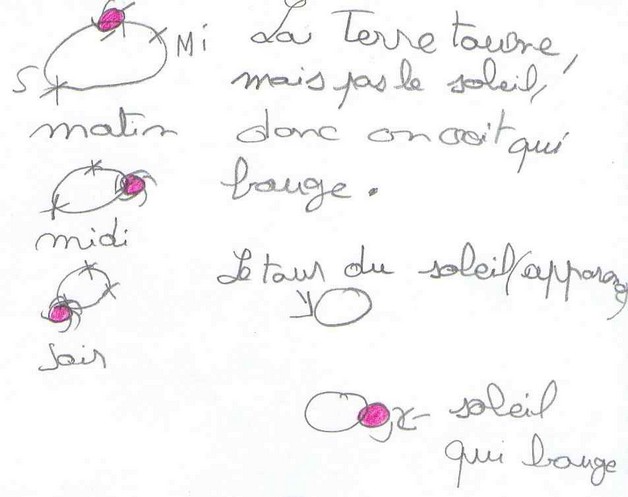 Mi
S
matin
La Terre tourne,
mais pas le soleil,
donc on croit qui
bouge.
midi
Le tour du soleil (apparen
soir
soleil
qui bouge